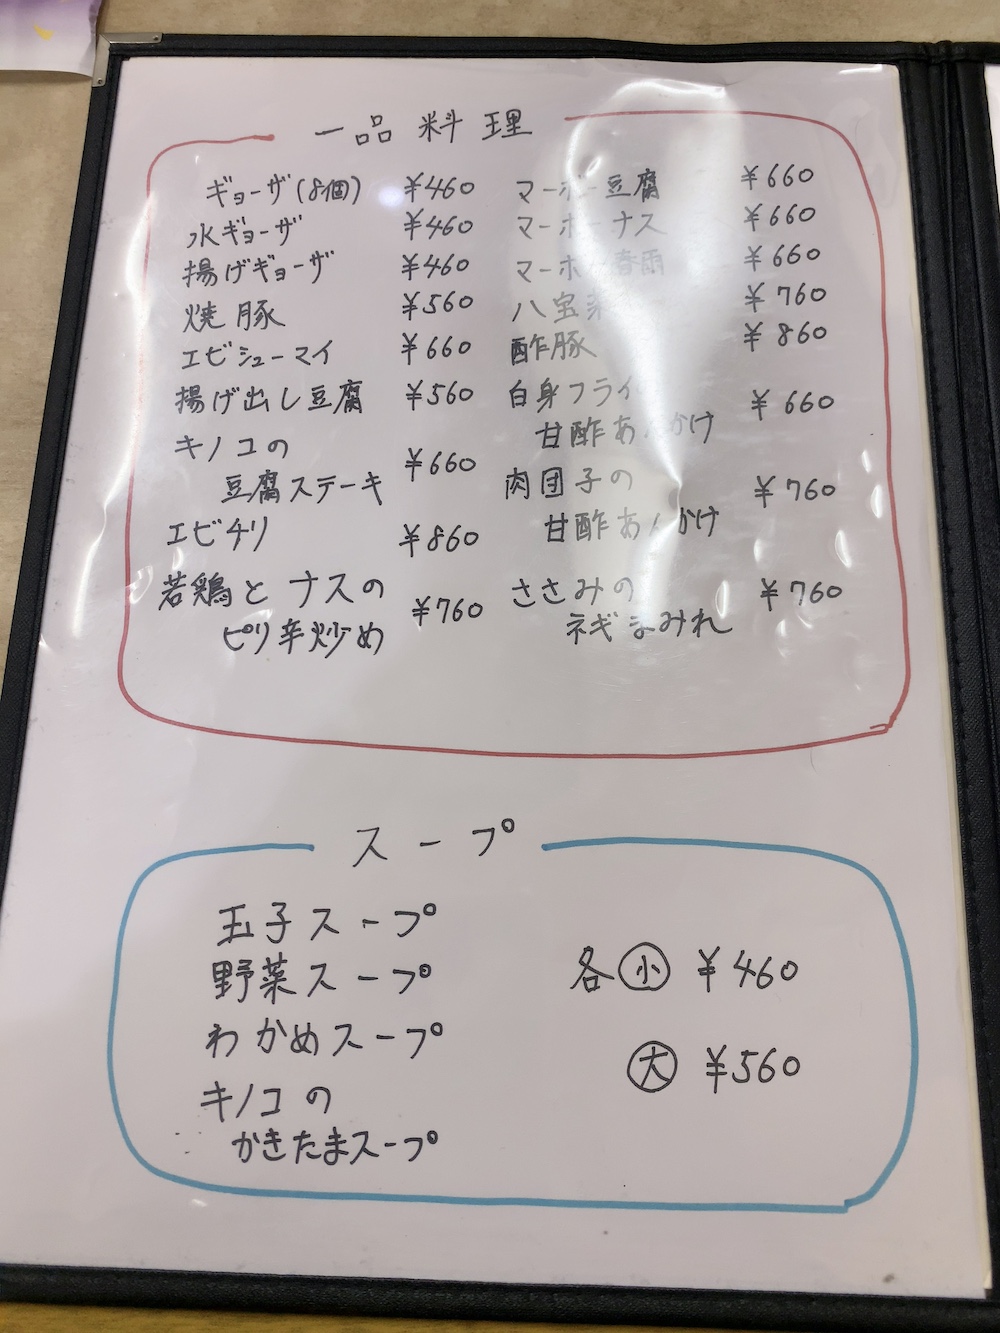 一品料理
ギョーザ(8個) ¥460
水ギョーザ ¥460
揚げギョーザ ¥460
焼豚 ¥560
エビシューマイ ¥660
揚げ出し豆腐 ¥560
キノコの
豆腐ステーキ ¥660
エビチリ ¥860
若鶏とナスの
ピリ辛炒め ¥760
マーボー豆腐 ¥660
マーボーナス ¥660
マーボー春雨 ¥660
八宝菜 ¥760
酢豚 ¥860
白身フライの
甘酢あんかけ ¥660
肉団子の
甘酢あんかけ ¥760
ささみの
ネギまみれ ¥760
スープ
玉子スープ
野菜スープ
わかめスープ
キノコの
かきたまスープ
各㊙小 ¥460
大 ¥560